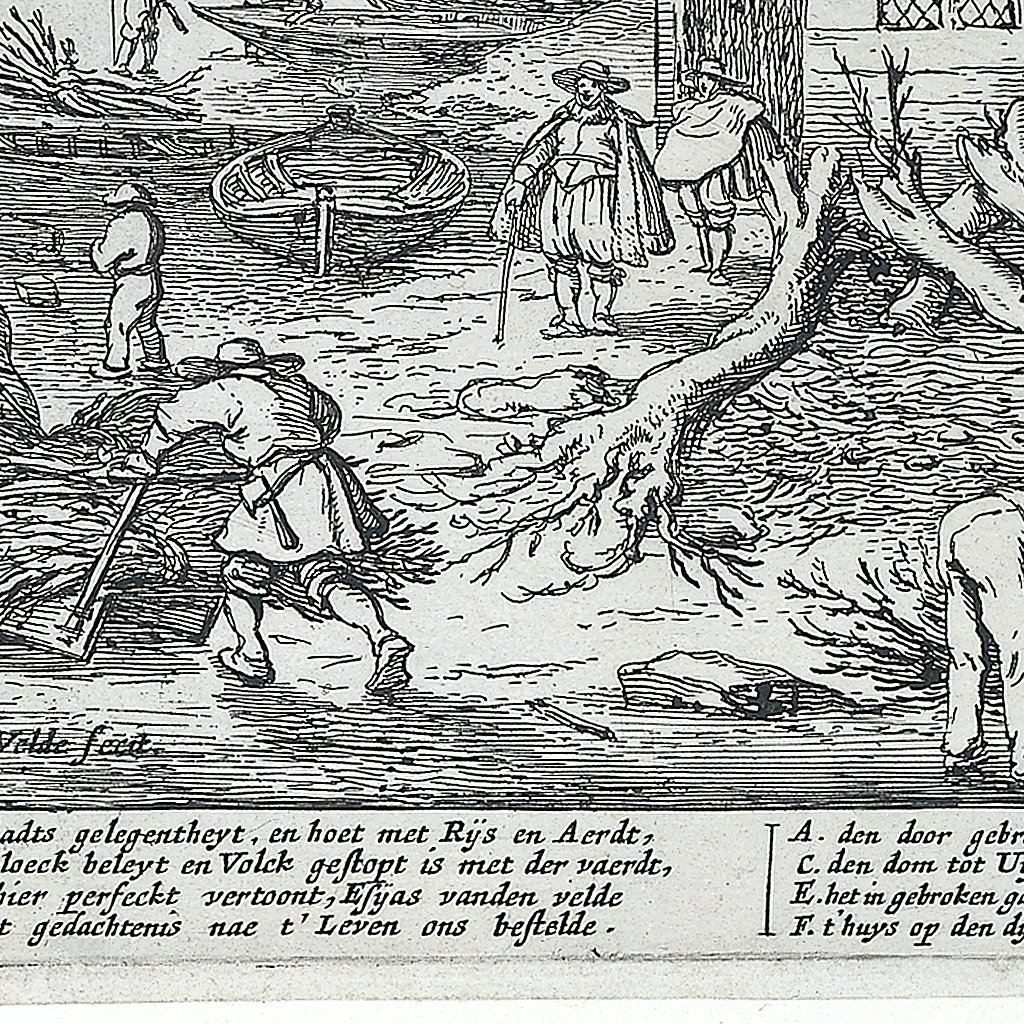 Velde fecit.
adts gelegentheyt, en hoet met Rijs en Aerdt,
loeck beleyt en Volck gestopt is met der vaerdt,
hier perfeckt vertoont, Esijas vanden velde
t gedachtenis nae t' Leven ons bestelde.
A. den door gebr
C. den dom tot U
E. het in gebroken ga
F. t'huys op den dij